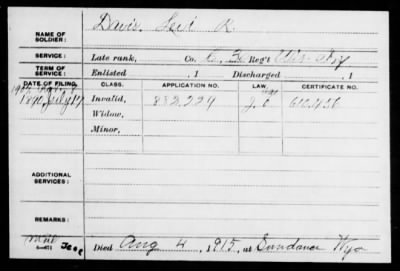 NAME OF SOLDIER: Davis, Levi R.
SERVICE: Late rank, Co. Reg't Inf
TERM OF SERVICE: Enlisted , 1 Discharged , 1
DATE OF FILING. CLASS. APPLICATION NO. LAW. CERTIFICATE NO.
1890, July 17 Invalid, 882,229
Widow,
Minor,
ADDITIONAL SERVICES:
REMARKS:
Died Aug 4, 1915, at Sundance Wyo